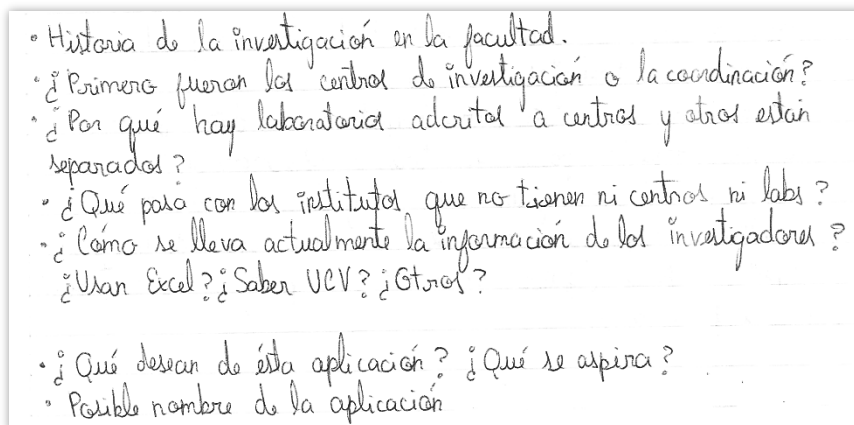 • Historia de la investigación en la facultad.
• ¿Primero fueron los centros de investigación o la coordinación?
• ¿Por qué hay laboratorios adcritos a centros y otros están
separados?
• ¿Qué pasa con los institutos que no tienen ni centros ni labs?
• ¿Cómo se lleva actualmente la información de los investigadores?
¿Usan Excel? ¿Saber UCV? ¿Otros?
• ¿Qué desean de ésta aplicación? ¿Qué se aspira?
• Posible nombre de la aplicación